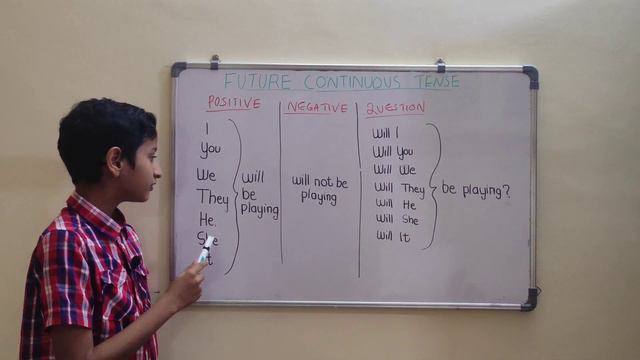 FUTURE CONTINUOUS TENSE
POSITIVE
I
You
We
They
He.
She
It
will
be
playing
NEGATIVE
will not be
playing
QUESTION
Will I
Will You
Will We
Will They
Will He
Will She
Will It
be playing?